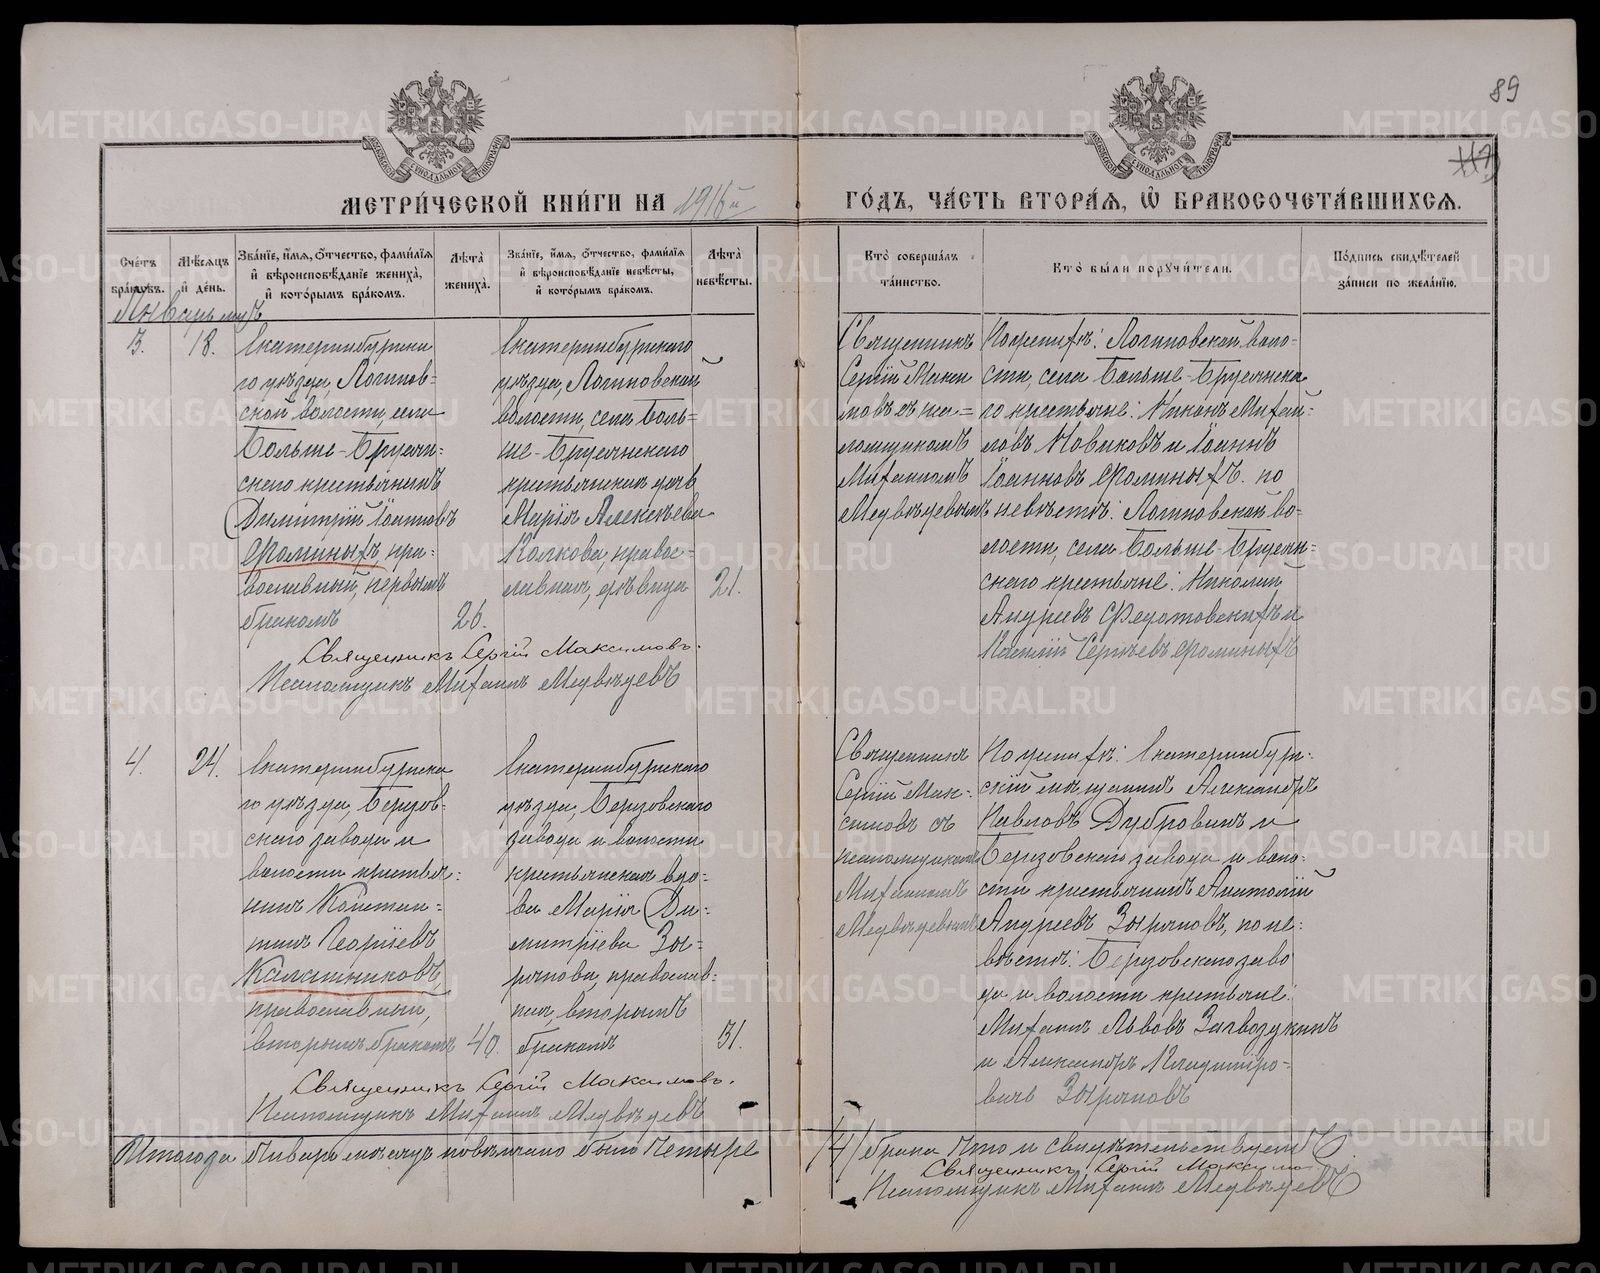 89
МЕТРИ́ЧЕСКОЙ КНИ́ГИ НА 1916й ГО́ДЪ, ЧА́СТЬ ВТОРА́Я, Ѽ БРАКОСОЧЕТА́ВШИХСЯ.
Сче́тъ бра́ковъ.
Мѣ́сяцъ и҆ де́нь.
Зва́нїе, и҆́мя, ѻ҆́тчество, фами́лїя и҆ вѣроисповѣ́данїе жениха̀, и҆ кото́рымъ бра́комъ.
Лѣта̀ жениха̀.
Зва́нїе, и҆́мя, ѻ҆́тчество, фами́лїя и҆ вѣроисповѣ́данїе невѣ́сты, и҆ кото́рымъ бра́комъ.
Лѣта̀ невѣ́сты.
Кто̀ соверша́лъ та́инство.
Кто̀ бы́ли порꙋчи́тели.
По́дпись свидѣ́телей за́писи по жела́нїю.
Январь м-цъ
3.
18.
Екатеринбургска
го уѣзда, Логинов=
ской волости, села
Больше-Брусян=
скаго крестьянинъ
Димитрій Іоанновъ
Ѳоминыхъ, пра=
вославный, первымъ
бракомъ
26.
Екатеринбургскаго
уѣзда, Логиновской
волости, села Боль=
ше-Брусянскаго
крестьянская дочь
Марія Алексѣева
Колкова, правос=
лавная, дѣвица
21.
Священникъ
Сергій Макси
мовъ съ пса=
ломщикомъ
Михаиломъ
Медвѣдевымъ
По женихѣ: Логиновской воло=
сти, села Больше-Брусянска
го крестьяне: Никонъ Михай=
ловъ Новиковъ и Іоаннъ
Іоанновъ Ѳоминыхъ. по
невѣстѣ: Логиновской во=
лости, села Больше-Брусян=
скаго крестьяне: Николай
Андреевъ Федотовскихъ и
Сергѣевъ Ѳоминыхъ
Священникъ Сергій Максимовъ.
Псаломщикъ Михаилъ Медвѣдевъ
4.
24.
Екатеринбургска
го уѣзда, Березов=
скаго завода и
волости крестья=
нинъ Констан=
тинъ Георгіевъ
Калашниковъ,
православный,
вторымъ бракомъ
40.
Екатеринбургскаго
уѣзда, Березовскаго
завода и волости
крестьянская вдо=
ва Марія Ди=
митріева Зы=
рянова, православ=
ная, вторымъ
бракомъ
31.
Священникъ
Сергій Мак=
симовъ съ
псаломщикомъ
Михаиломъ
Медвѣдевымъ
По женихѣ: Екатеринбург=
скій мѣщанинъ Александръ
Павловъ Дубровинъ и
Березовскаго завода и воло=
сти крестьянинъ Анатолій
Андреевъ Зыряновъ, по не=
вѣстѣ: Березовскаго заво
да и волости крестьяне:
Михаилъ Львовъ Загвоздкинъ
и Александръ Владиміро=
вичъ Зыряновъ
Священникъ Сергій Максимовъ.
Псаломщикъ Михаилъ Медвѣдевъ
Итого за Январь мѣсяцъ повѣнчано было четыре /4/ брака что и свидѣтельствуемъ
Священникъ Сергій Максимо
Псаломщикъ Михаилъ Медвѣдевъ
METRIKI.GASO-URAL.RU